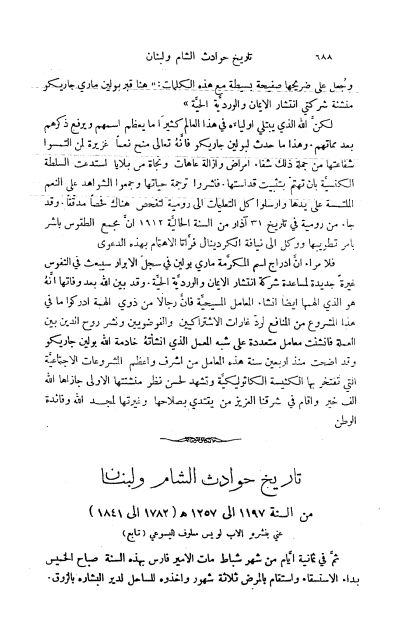 ٦٨٨ تاريخ حوادث الشام ولبنان
وجُعل على ضريحها صفيحة بسيطة مع هذه الكلمات: « هنا قبر بولين ماري جاريكو
منشئة شركتي انتشار الايمان والورديّة الحيّة »
لكنَّ الله الذي يبتلي اولياءه في هذا العالم كثيرًا ما يعظم اسمهم ويرفع ذكرهم
بعد مماتهم. وهذا ما حدث لبولين جاريكو فانَّه تعالى منح نعمًا غزيرة لمن التمسوا
شفاعتها من جملة ذلك شفاء امراض وازالة عاهات ونجاة من بلايا استدعت السلطة
الكنسيّة بان تهتم بتثبيت قداستها. فنشروا ترجمة حياتها وجمعوا الشواهد على النعم
الملتمسة على يدها وارسلوا كل التعليات الى رومية لتفحص هناك فحصًا مدقّقًا. وقد
جاء من رومية في تاريخ ٣١ آذار من السنة الحاليّة ١٩١٢ انَّ مجمع الطقوس باشر
بامر تطويبها ووكل الى نيافة الكردينال فرّاتا الاهتمام بهذه الدعوى
فلا مراء انَّ ادراج اسم المكرّمة ماري بولين في سجل الابرار سيبعث في النفوس
غيرةً جديدة لمساعدة شركة انتشار الايمان والورديّة الحيّة. وقد بين الله بعد وفاتها انَّهُ
هو الذي الهمها ايضًا انشاء العامل المسيحيّة فانَّ رجالًا من ذوي الهمة ادركوا ما في
هذا المشروع من المنافع لردّ غارات الاشتراكيين والفوضويين ونشر روح الدين بين
العملة فانشئت معامل متعددة على شبه المعمل الذي انشأتهُ خادمة الله بولين جاريكو
وقد اضحت منذ اربعين سنة هذه المعامل من اشرف واعظم المشروعات الاجتماعيّة
التي تفتخر بها الكنيسة الكاثوليكيّة وتشهد لحسن نظر منشئتها الاولى جازاها الله
الف خير واقام في شرقنا العزيز من يقتدي بصلاحها وغيرتها لمجد الله وفائدة
الوطن
تاريخ حوادث الشام ولبنان
من السنة ١١٩٧ الى ١٢٥٧ ه (١٧٨٢ الى ١٨٤١)
عني بنشره الاب لويس معلوف اليسوعي (تابع)
ثمَّ في ثمانية ايّام من شهر شباط مات الامير فارس بهذه السنة صباح الخميس
بداء الاستسقاء واستقام بالمرض ثلاثة شهور واخذوه للساحل لدير البشاره بالزوق.